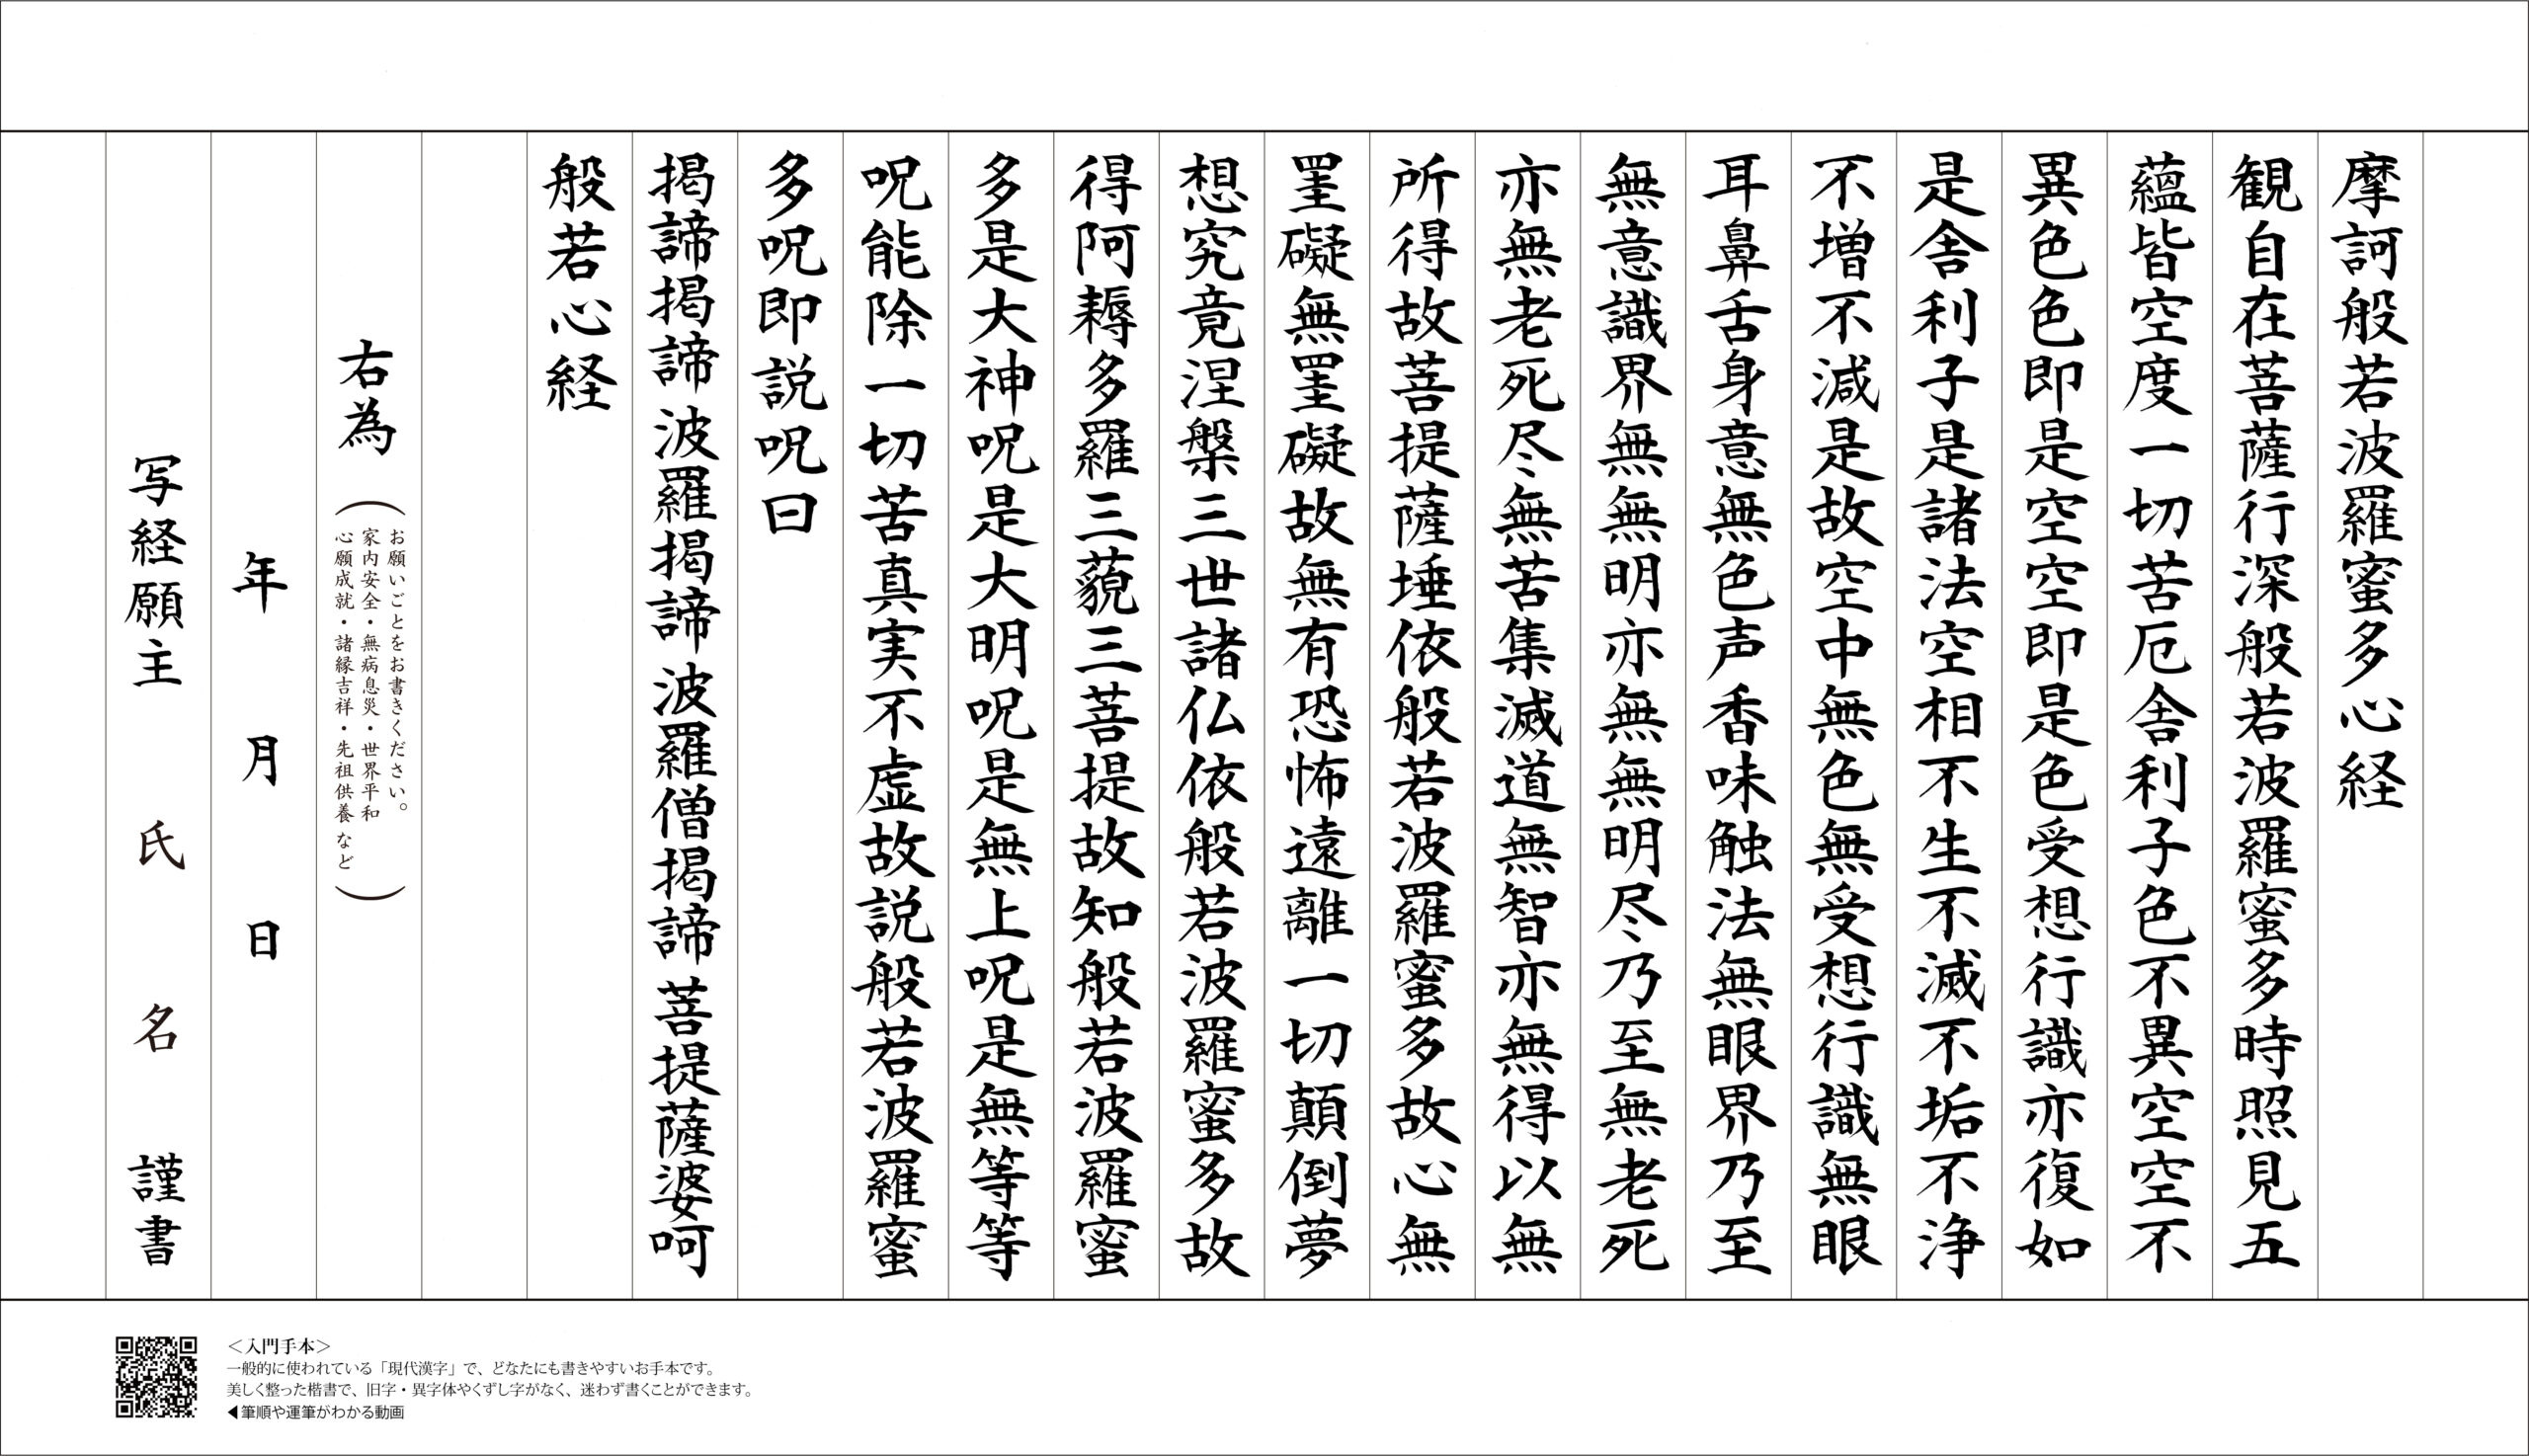 摩訶般若波羅蜜多心経
観自在菩薩行深般若波羅蜜多時照見五
蘊皆空度一切苦厄舎利子色不異空空不
異色色即是空空即是色受想行識亦復如
是舎利子是諸法空相不生不滅不垢不浄
不増不減是故空中無色無受想行識無眼
耳鼻舌身意無色声香味触法無眼界乃至
無意識界無無明亦無無明尽乃至無老死
亦無老死尽無苦集滅道無智亦無得以無
所得故菩提薩埵依般若波羅蜜多故心無
罣礙無罣礙故無有恐怖遠離一切顛倒夢
想究竟涅槃三世諸仏依般若波羅蜜多故
得阿耨多羅三藐三菩提故知般若波羅蜜
多是大神呪是大明呪是無上呪是無等等
呪能除一切苦真実不虚故説般若波羅蜜
多呪即説呪曰
掲諦掲諦 波羅掲諦 波羅僧掲諦 菩提薩婆呵
般若心経
右為
(お願いごとをお書きください。
家内安全・無病息災・世界平和
心願成就・諸縁吉祥・先祖供養 など)
年 月 日
写経願主 氏 名 謹書
＜入門手本＞
一般的に使われている「現代漢字」で、どなたにも書きやすいお手本です。
美しく整った楷書で、旧字・異字体やくずし字がなく、迷わず書くことができます。
◀筆順や運筆がわかる動画